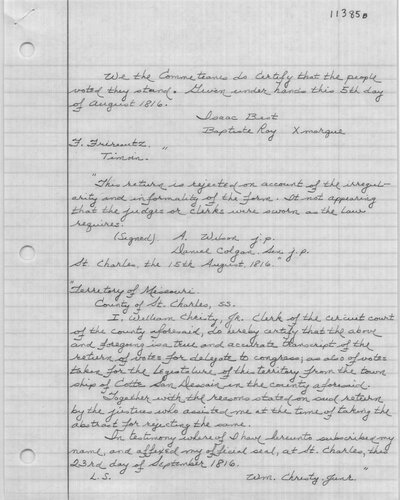 11385B
We the Commeteanes do Certify that the people
voted they stand. Given under hands this 5th day
of August 1816.
Isaac Best
Baptiste Roy X marque
F.
Timon. "
"This return is rejected on account of the irregul-
arity and informality of the form. It not appearing
that the judges or clerks were sworn as the law
requires.
(Signed) A. Wilson j.p.
Daniel Colgan, Sen j.p.
St. Charles, the 15th August, 1816."
"Territory of Missouri.
County of St. Charles, ss.
I, William Christy, Jr. Clerk of the circuit court
of the county aforesaid, do hereby certify that the above
and foregoing is a true and accurate transcript of the
return of votes for delegate to congress; as also of votes
taken for the legislature of this territory from the town
ship of Cotte San Dessain in the county aforesaid.
"Together with the reasons stated on said return
by the justices who assisted me at the time of taking the
abstract for rejecting the same.
In testimony where of I have hereunto subscribed my
name, and affixed my official seal, at St. Charles, this
23rd day of September 1816.
L.S. Wm. Christy, Junr. "